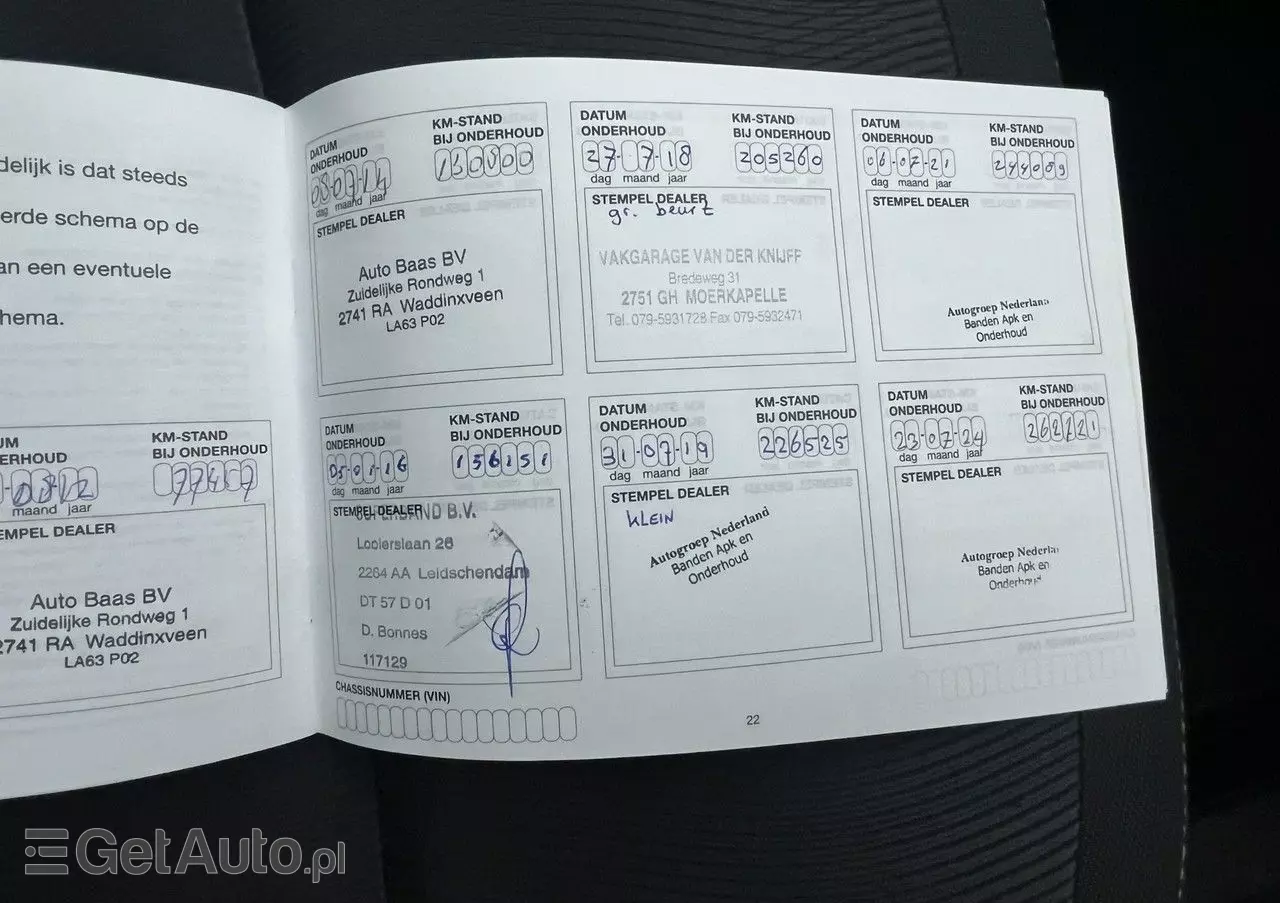 delijk is dat steeds
erde schema op de
an een eventuele
hema.
UM
ERHOUD
KM-STAND
BIJ ONDERHOUD
-0812
77457
maand jaar
EMPEL DEALER
Auto Baas BV
Zuidelijke Rondweg 1
2741 RA Waddinxveen
LA63 P02
DATUM
ONDERHOUD
KM-STAND
BIJ ONDERHOUD
08-07-14
130800
dag maand jaar
STEMPEL DEALER
Auto Baas BV
Zuidelijke Rondweg 1
2741 RA Waddinxveen
LA63 P02
DATUM
ONDERHOUD
KM-STAND
BIJ ONDERHOUD
05-01-16
156151
dag maand jaar
STEMPEL DEALER
B.V.
Looierslaan 26
2264 AA Leidschendam
DT 57 D 01
D. Bonnes
117129
CHASSISNUMMER (VIN)
DATUM
ONDERHOUD
KM-STAND
BIJ ONDERHOUD
27-7-18
205260
dag maand jaar
STEMPEL DEALER
gr. beurt
VAKGARAGE VAN DER KNIJFF
Bredeweg 31
2751 GH MOERKAPELLE
Tel. 079-5931728 Fax 079-5932471
DATUM
ONDERHOUD
KM-STAND
BIJ ONDERHOUD
31-07-19
226525
dag maand jaar
STEMPEL DEALER
KLEIN
Autogroep Nederland
Banden Apk en
Onderhoud
DATUM
ONDERHOUD
KM-STAND
BIJ ONDERHOUD
06-07-21
244089
dag maand jaar
STEMPEL DEALER
Autogroep Nederland
Banden Apk en
Onderhoud
DATUM
ONDERHOUD
KM-STAND
BIJ ONDERHOUD
23-07-24
262721
dag maand jaar
STEMPEL DEALER
Autogroep Nederlan
Banden Apk en
Onderhoud
22
GetAuto.pl